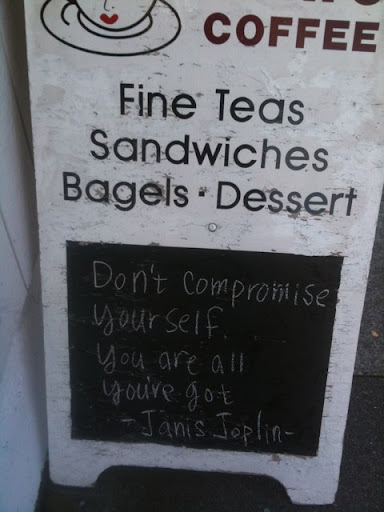 COFFEE
Fine Teas
Sandwiches
Bagels · Dessert
Don't compromise
yourself.
You are all
you've got
-Janis Joplin-